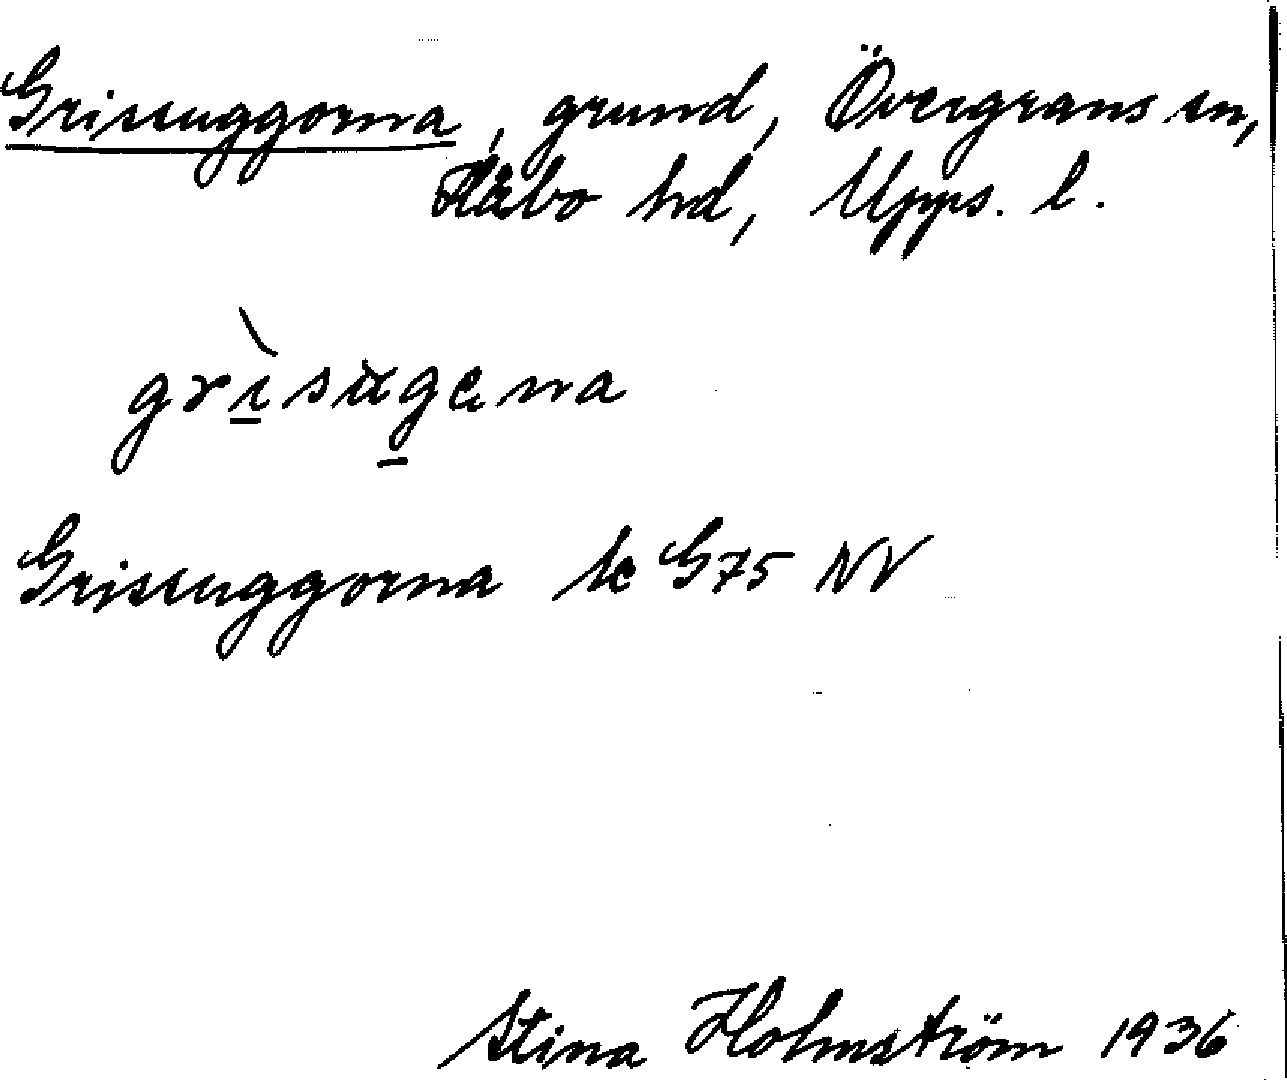 Grissuggorna, grund, Övergrans sn,
Håbo hd, Upps. l.
grìsùgena
Grissuggorna k G75 NV
Stina Holmström 1936